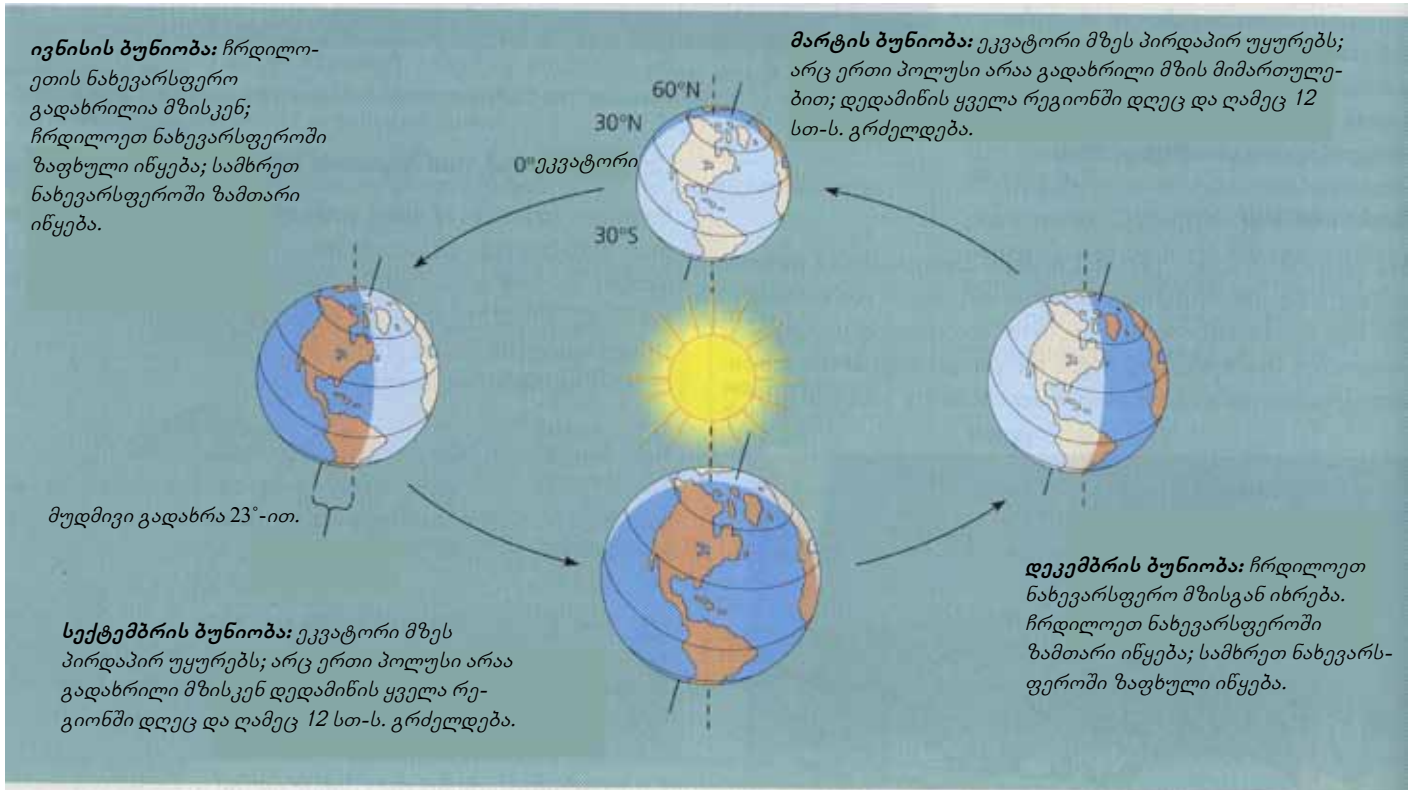 ივნისის ბუნიობა: ჩრდილო-
ეთის ნახევარსფერო
გადახრილია მზისკენ;
ჩრდილოეთ ნახევარსფეროში
ზაფხული იწყება; სამხრეთ
ნახევარსფეროში ზამთარი
იწყება.
მარტის ბუნიობა: ეკვატორი მზეს პირდაპირ უყურებს;
არც ერთი პოლუსი არაა გადახრილი მზის მიმართულე-
ბით; დედამიწის ყველა რეგიონში დღეც და ღამეც 12
სთ-ს. გრძელდება.
60°N
30°N
0° ეკვატორი
30°S
მუდმივი გადახრა 23°-ით.
სექტემბრის ბუნიობა: ეკვატორი მზეს
პირდაპირ უყურებს; არც ერთი პოლუსი არაა
გადახრილი მზისკენ დედამიწის ყველა რე-
გიონში დღეც და ღამეც 12 სთ-ს. გრძელდება.
დეკემბრის ბუნიობა: ჩრდილოეთ
ნახევარსფერო მზისგან იხრება.
ჩრდილოეთ ნახევარსფეროში
ზამთარი იწყება; სამხრეთ ნახევარს-
ფეროში ზაფხული იწყება.